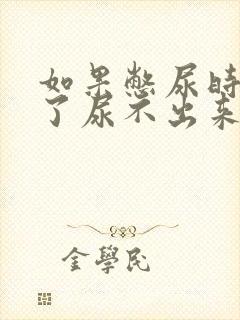 如果憋尿時
了尿不出来
金學民